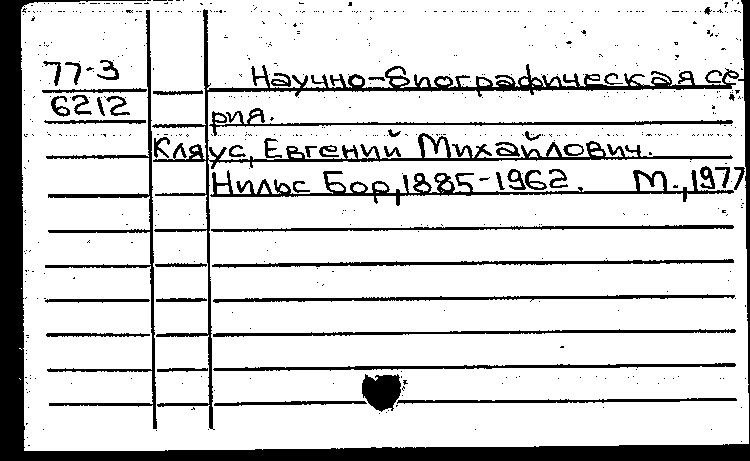 77-3 Научно-биографическая се-
6212 рия.
Кляус, Евгений Михайлович.
Нильс Бор, 1885-1962. М., 1977